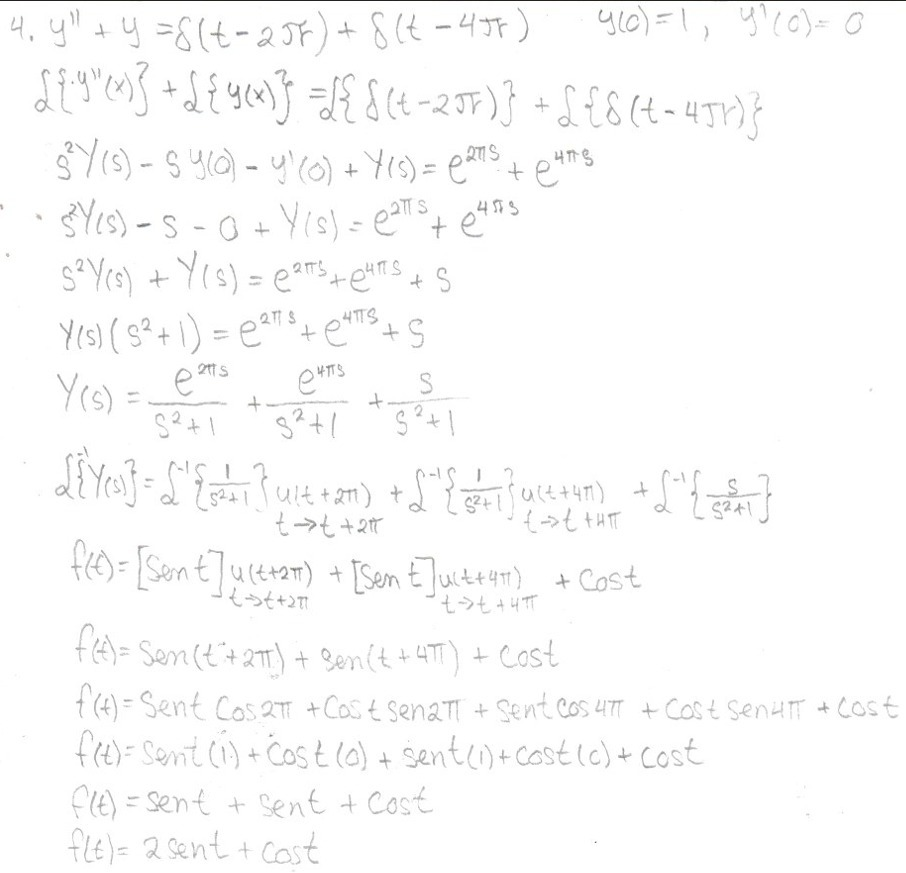 4. y'' + y = δ(t-2π) + δ(t-4π) y(0)=1, y'(0)=0
ℒ{y''(x)} + ℒ{y(x)} = ℒ{δ(t-2π)} + ℒ{δ(t-4π)}
s²Y(s) - sy(0) - y'(0) + Y(s) = e^{2πs} + e^{4πs}
s²Y(s) - s - 0 + Y(s) = e^{2πs} + e^{4πs}
s²Y(s) + Y(s) = e^{2πs} + e^{4πs} + s
Y(s)(s²+1) = e^{2πs} + e^{4πs} + s
Y(s) = e^{2πs}/(s²+1) + e^{4πs}/(s²+1) + s/(s²+1)
ℒ⁻¹{Y(s)} = ℒ⁻¹{1/(s²+1)} u(t+2π) t→t+2π + ℒ⁻¹{1/(s²+1)} u(t+4π) t→t+4π + ℒ⁻¹{s/(s²+1)}
f(t) = [Sen t] u(t+2π) t→t+2π + [Sen t] u(t+4π) t→t+4π + Cost
f(t) = Sen(t+2π) + sen(t+4π) + Cost
f(t) = Sent Cos2π + Cost sen2π + sent cos4π + Cost sen4π + Cost
f(t) = Sent(1) + Cost(0) + sent(1) + cost(0) + cost
f(t) = sent + sent + Cost
f(t) = 2sent + cost